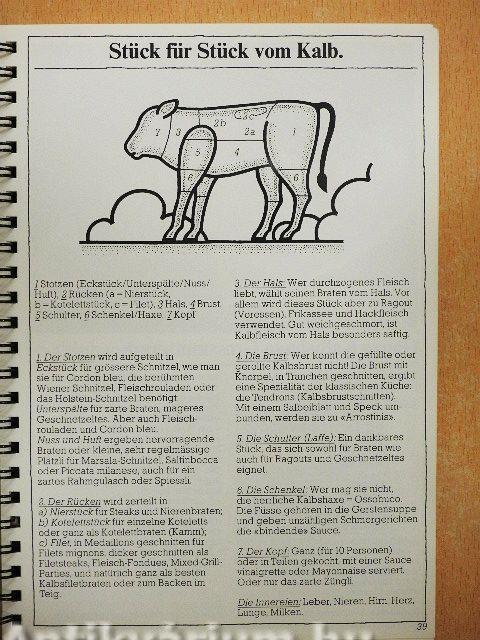 Stück für Stück vom Kalb.
7
3
2b
2c
2a
1
5
4
6
6
1 Stotzen (Eckstück/Unterspälte/Nuss/
Huft), 2 Rücken (a = Nierstück,
b = Kotelettstück, c = Filet), 3 Hals, 4 Brust,
5 Schulter, 6 Schenkel/Haxe, 7 Kopf
1. Der Stotzen wird aufgeteilt in
Eckstück für grössere Schnitzel, wie man
sie für Cordon bleu, die berühmten
Wiener Schnitzel, Fleischrouladen oder
das Holstein-Schnitzel benötigt.
Unterspälte für zarte Braten, mageres
Geschnetzeltes. Aber auch Fleisch-
rouladen und Cordon bleu.
Nuss und Huft ergeben hervorragende
Braten oder kleine, sehr regelmässige
Plätzli für Marsala-Schnitzel, Saltinbocca
oder Piccata milanese, auch für ein
zartes Rahmgulasch oder Spiessli.
2. Der Rücken wird zerteilt in
a) Nierstück für Steaks und Nierenbraten;
b) Kotelettstück für einzelne Koteletts
oder ganz als Kotelettbraten (Kamm);
c) Filet, in Medaillons geschnitten für
Filets mignons, dicker geschnitten als
Filetsteaks, Fleisch-Fondues, Mixed Grill-
Parties, und natürlich ganz als besten
Kalbsfiletbraten oder zum Backen im
Teig.
3. Der Hals: Wer durchzogenes Fleisch
liebt, wählt seinen Braten vom Hals. Vor
allem wird dieses Stück aber zu Ragout
(Voressen), Frikassee und Hackfleisch
verwendet. Gut weichgeschmort, ist
Kalbfleisch vom Hals besonders saftig.
4. Die Brust: Wer kennt die gefüllte oder
gerollte Kalbsbrust nicht! Die Brust mit
Knorpel, in Tranchen geschnitten, ergibt
eine Spezialität der klassischen Küche:
die Tendrons (Kalbsbrustschnitten).
Mit einem Salbeiblatt und Speck um-
bunden, werden sie zu «Arrostinis».
5. Die Schulter (Laffe): Ein dankbares
Stück, das sich sowohl für Braten wie
auch für Ragouts und Geschnetzeltes
eignet.
6. Die Schenkel: Wer mag sie nicht,
die herrliche Kalbshaxe = Ossobuco.
Die Füsse gehören in die Gerstensuppe
und geben unzähligen Schmorgerichten
die «bindende» Sauce.
7. Der Kopf: Ganz (für 10 Personen)
oder in Teilen gekocht, mit einer Sauce
vinaigrette oder Mayonnaise serviert.
Oder nur das zarte Züngli.
Die Innereien: Leber, Nieren, Hirn, Herz,
Lunge, Milken.
39